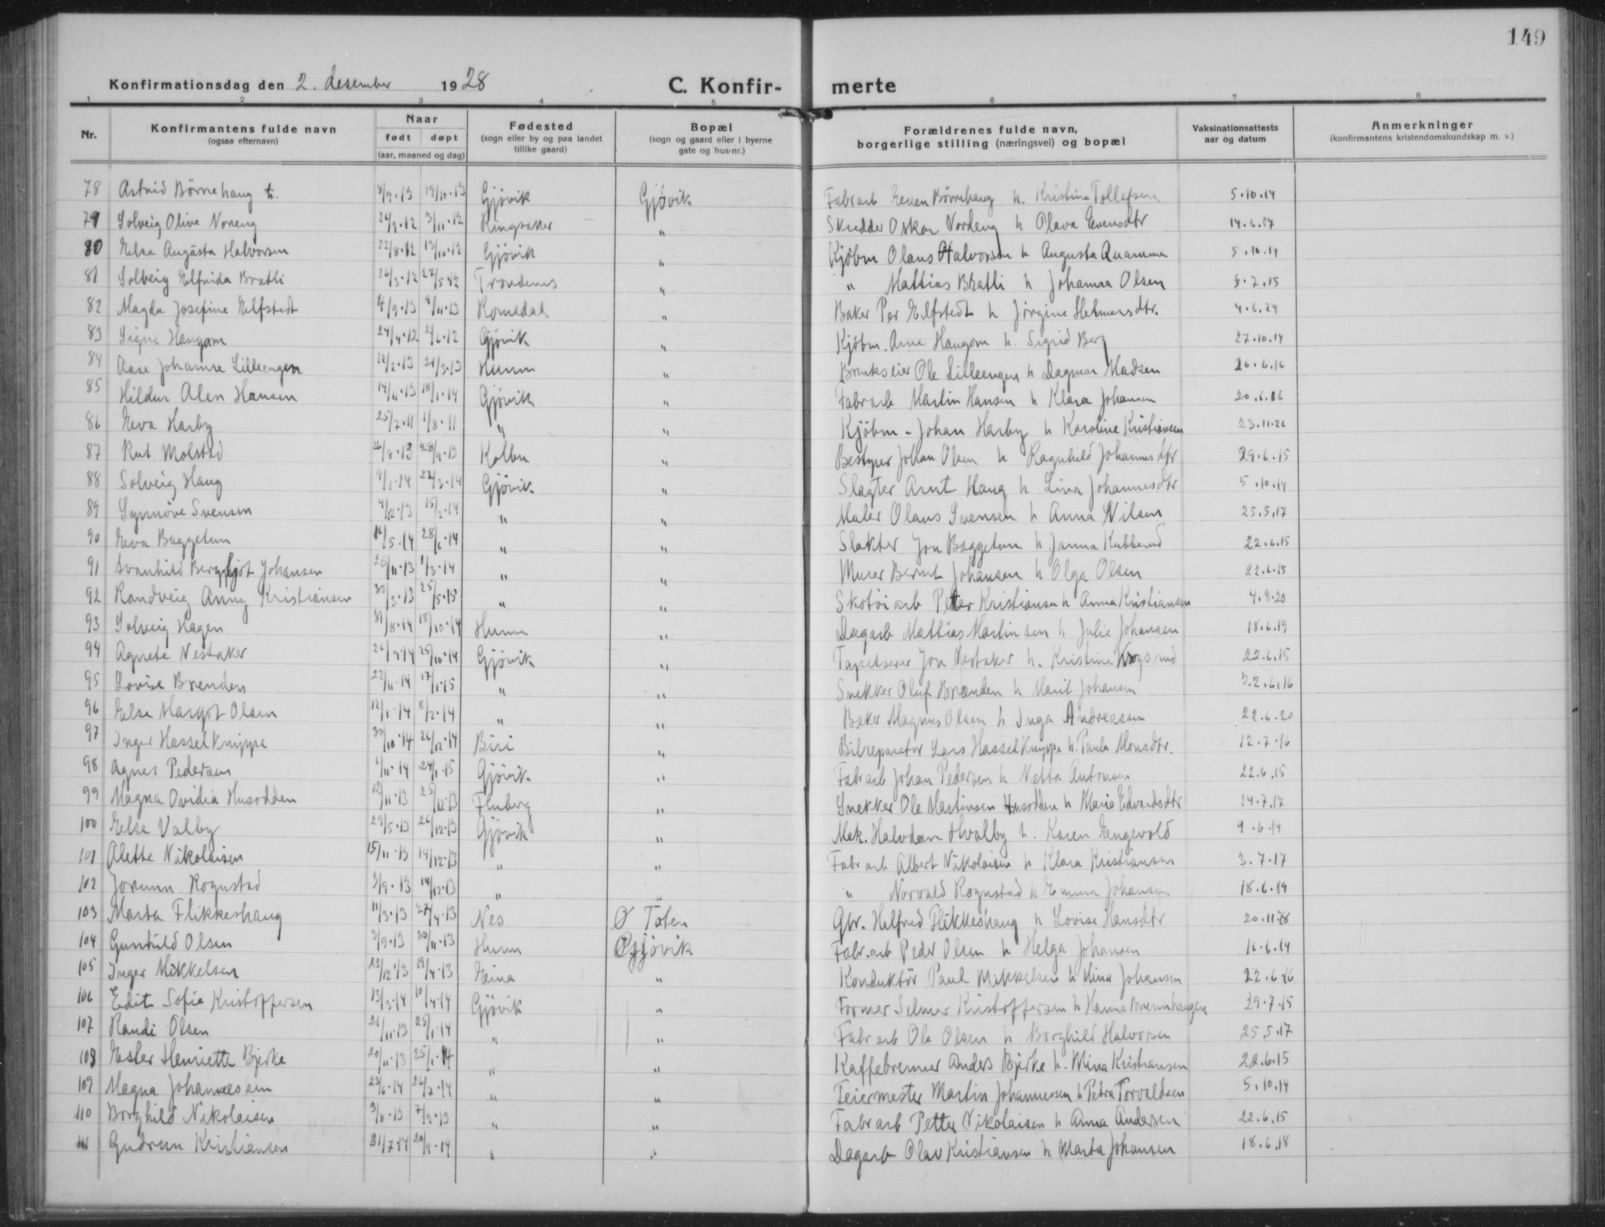 149
Konfirmationsdag den 2. desember 1928 C. Konfir- merte
1 2 3 4 5 6 7 8
Nr. Konfirmantens fulde navn (ogsaa efternavn) Naar født døpt (aar, maaned og dag) Fødested (sogn eller by og paa landet tillike gaard) Bopæl (sogn og gaard eller i byerne gate og hus-nr.) Forældrenes fulde navn, borgerlige stilling (næringsvei) og bopæl Vaksinationsattests aar og datum Anmerkninger (konfirmantens kristendomskundskap m. v.)
78 Astrid Børnehaug 8/9.13 19/10.13 Gjøvik Gjøvik Fabrarb Børnehaug h. Kristine Tollefsen 5.10.14
79 Solveig Olive Noreng 3/11.12 Ringsaker " Skredder Oskar Nordeng h Olava Evensdtr 14.6.17
80 Else Augusta Halvorsen 22/8.12 13/10.12 Gjøvik " Kjøbm Olaus Halvorsen h Augusta Quamme 5.10.14
81 Solveig Elfrida Bratli 27/5.12 Trondenes " " Mattias Bratli h Johanna Olsen 5.7.15
82 Magda Josefine Elfstedt 4/9.13 Romedal " Baker Per Elfstedt h Jørgine Helmersdtr. 4.6.24
83 Signe Haugom 24/4.12 2/6.12 Gjøvik " Kjøbm. Arne Haugom h. Sigrid Berg 27.10.14
84 Aase Johanne Lilleengen 12/2.13 24/3.13 Hunn " Brukseier Ole Lilleengen h Dagmar Madsen 26.6.16
85 Hildur Alen Hansen 14/11.13 18/1.14 Gjøvik " Fabrarb Martin Hansen h Klara Johansen 20.6.16
86 Eva Harby 25/7.11 1/8.11 " " Kjøbm - Johan Harby h Karoline Kristiansen 23.11.26
87 Rut Molstad 28/9.13 Kolbu " Bestyrer Johan Olsen h Ragnhild Johannesdtr 29.6.15
88 Solveig Haug 9/1.14 22/3.14 Gjøvik " Slagter Arnt Haug h Lina Johannesdtr 5.10.14
89 Synnøve Svensen 15/2.14 " " Maler Olaus Svensen h Anna Nilsen 25.5.17
90 Eva Baggetun 16/5.14 28/6.14 " " Slakter Jon Baggetun h Janna Kubberud 22.6.15
91 Svanhild Bergljot Johansen 25/11.13 1/3.14 " " Murer Bernt Johansen h Olga Olsen 22.6.15
92 Randveig Anny Kristiansen 30/3.13 25/5.13 " " Skotøiarb Peter Kristiansen h Anna Kristiansen 4.8.20
93 Solveig Hagen 31/8.14 18/10.14 Hunn " Dagarb Mattias Martinsen h Julie Johansen 18.6.19
94 Agnete Nestaker 25/10.14 Gjøvik " Tapetserer Jon Nestaker h. Kristine 22.6.15
95 Lovise Brenden 22/11.14 17/1.15 " " Snekker Oluf Brenden h Marit Johansen 22.6.16
96 Else Margot Olsen 12/1.14 8/2.14 " " Baker Magnus Olsen h Inga Andreassen 22.6.20
97 Inger Hasselknippe 30/10.14 26/12.14 Biri " Bilreparatør Lars Hasselknippe h. Paula Monsdtr. 12.7.16
98 Agnes Pedersen 1/11.14 24/1.15 Gjøvik " Fabrarb Johan Pedersen h Netta Antonsen 22.6.15
99 Magna Ovidia Husodden 12/11.13 25/12.13 Fluberg " Snekker Ole Martinsen Husodden h Marie Edvardsdtr 14.7.17
100 Else Valby 29/5.13 26/12.13 Gjøvik " Mek. Halvdan Hvalby h. Karen Engevold 9.6.14
101 Alette Nikolaisen 15/11.13 14/12.13 " " Fabrarb Albert Nikolaisen h Klara Kristiansen 3.7.17
102 Jorunn Rognstad 3/9.13 14/12.13 " " " Norvald Rognstad h Emma Johansen 18.6.19
103 Marta Flikkeshaug 11/3.13 27/4.13 Nes Ø Toten Gbr. Helfred Flikkeshaug h Lovise Hansdtr 20.11.28
104 Gunhild Olsen 3/9.13 30/11.13 Hunn Gjøvik Fabr.arb Peder Olsen h Helga Johansen 16.6.14
105 Inger Mikkelsen 19/4.13 Eina " Konduktør Paul Mikkelsen h Mina Johansen 22.6.16
106 Edit Sofie Kristoffersen 13/3.14 10/4.14 Gjøvik " Former Selmer Kristoffersen h Hanna Brennhaugen 29.7.15
107 Randi Olsen 21/11.13 25/1.14 " " Fabrarb Ole Olsen h Borghild Halvorsen 25.5.17
108 Ester Henriette Bjerke 20/11.13 25/1.14 " " Kaffebrenner Anders Bjerke h. Mina Kristiansen 22.6.15
109 Magna Johannessen 23/6.14 26/7.14 " " Feiermester Martin Johannessen h Petra Torvaldsen 5.10.14
110 Borghild Nikolaisen 3/8.13 7/9.13 " " Fabrarb Petter Nikolaisen h Anna Andersen 22.6.15
111 Gudrun Kristiansen 31/7.14 20/9.14 " " Dagarb Olav Kristiansen h Marta Johansen 18.6.18